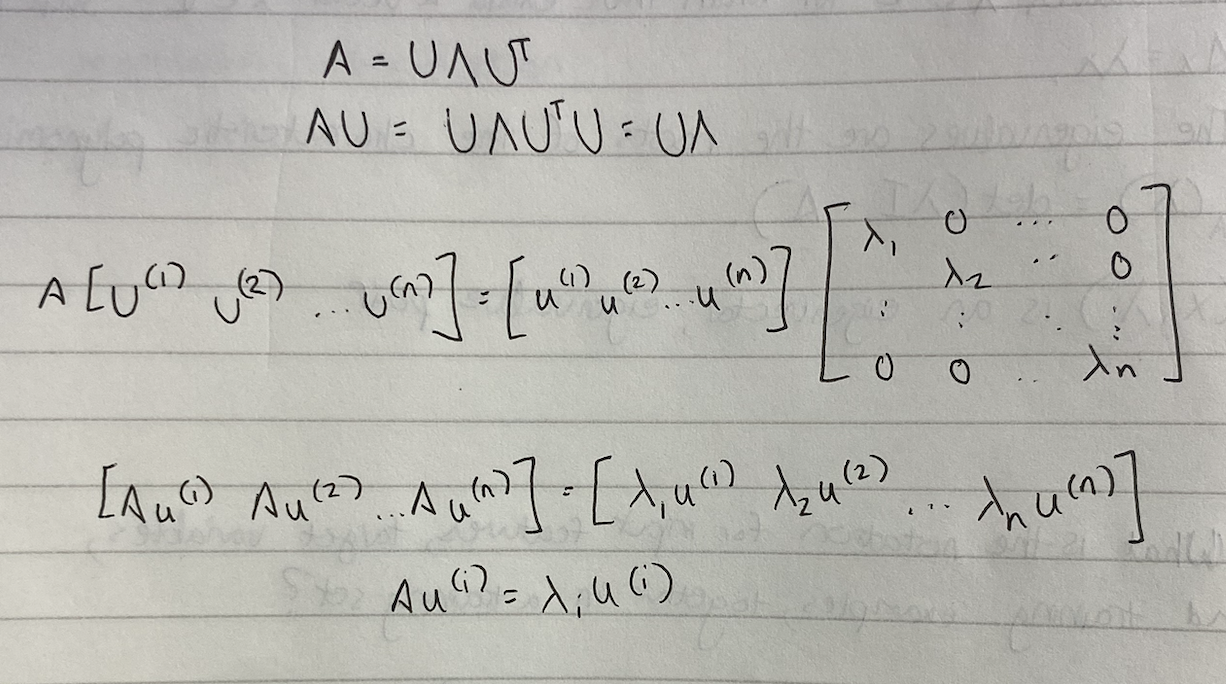 A = UΛUᵀ
AU = UΛUᵀU = UΛ
A [U⁽¹⁾ U⁽²⁾ ... U⁽ⁿ⁾] = [u⁽¹⁾ u⁽²⁾ ... u⁽ⁿ⁾] [λ₁ 0 ... 0
λ₂ .. 0
: : ⋱ ⋮
0 0 .. λn]
[Au⁽¹⁾ Au⁽²⁾ ... Au⁽ⁿ⁾] = [λ₁u⁽¹⁾ λ₂u⁽²⁾ ... λₙu⁽ⁿ⁾]
Au⁽ⁱ⁾ = λᵢu⁽ⁱ⁾